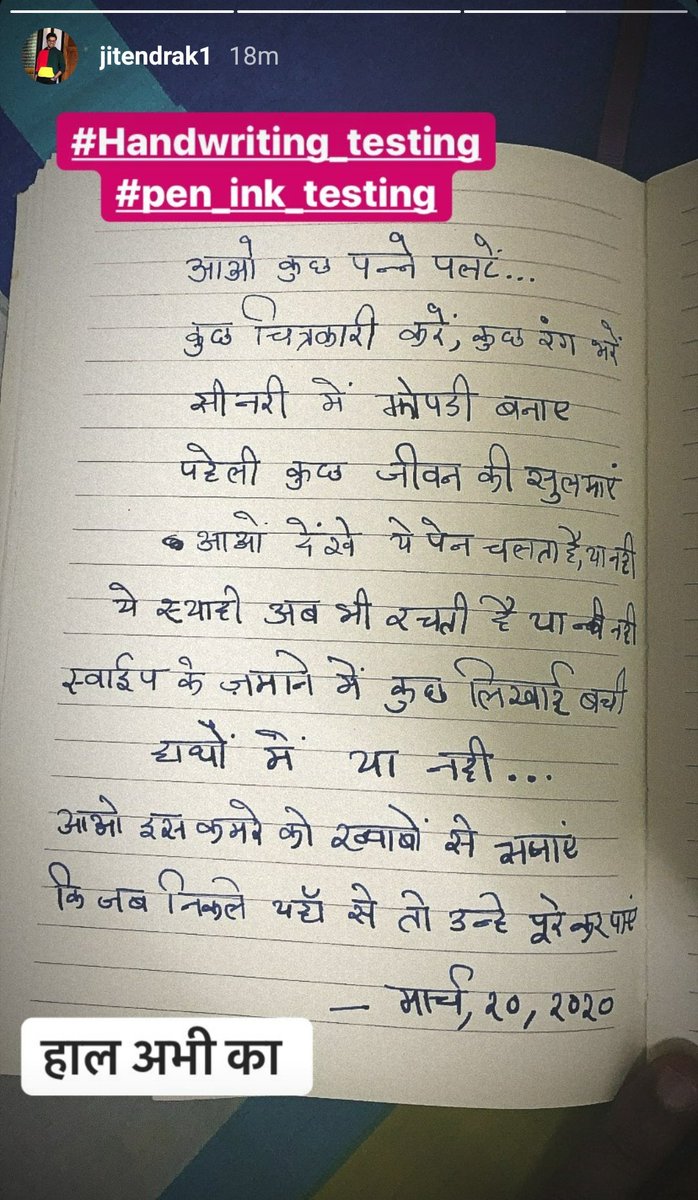 jitendrak1 18m
#Handwriting_testing
#pen_ink_testing
आओ कुछ पन्ने पलटें...
कुछ चित्रकारी करें, कुछ रंग भरें
सीनरी में झोपडी बनाए
पहेली कुछ जीवन की सुलझाएं
आओं देंखे ये पेन चलता है, या नही
ये स्याही अब भी रचती है या नही
स्वाईप के ज़माने में कुछ लिखाई बची
हाथों में या नही...
आओ इस कमरे को ख्वाबों से सजाएं
कि जब निकले यहाँ से तो उन्हे पूरे कर पाएं
— मार्च, २०, २०२०
हाल अभी का